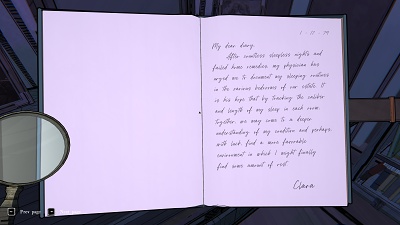 My dear diary,
After countless sleepless nights and
failed home remedies, my physician has
urged me to document my sleeping routines
in the various bedrooms of our estate. It
is his hope that by tracking the number
and length of my sleep in each room,
together, we may come to a deeper
understanding of my condition and perhaps,
with luck, find a more favorable
environment in which I might finally
find some amount of rest.
Clara
Prev page